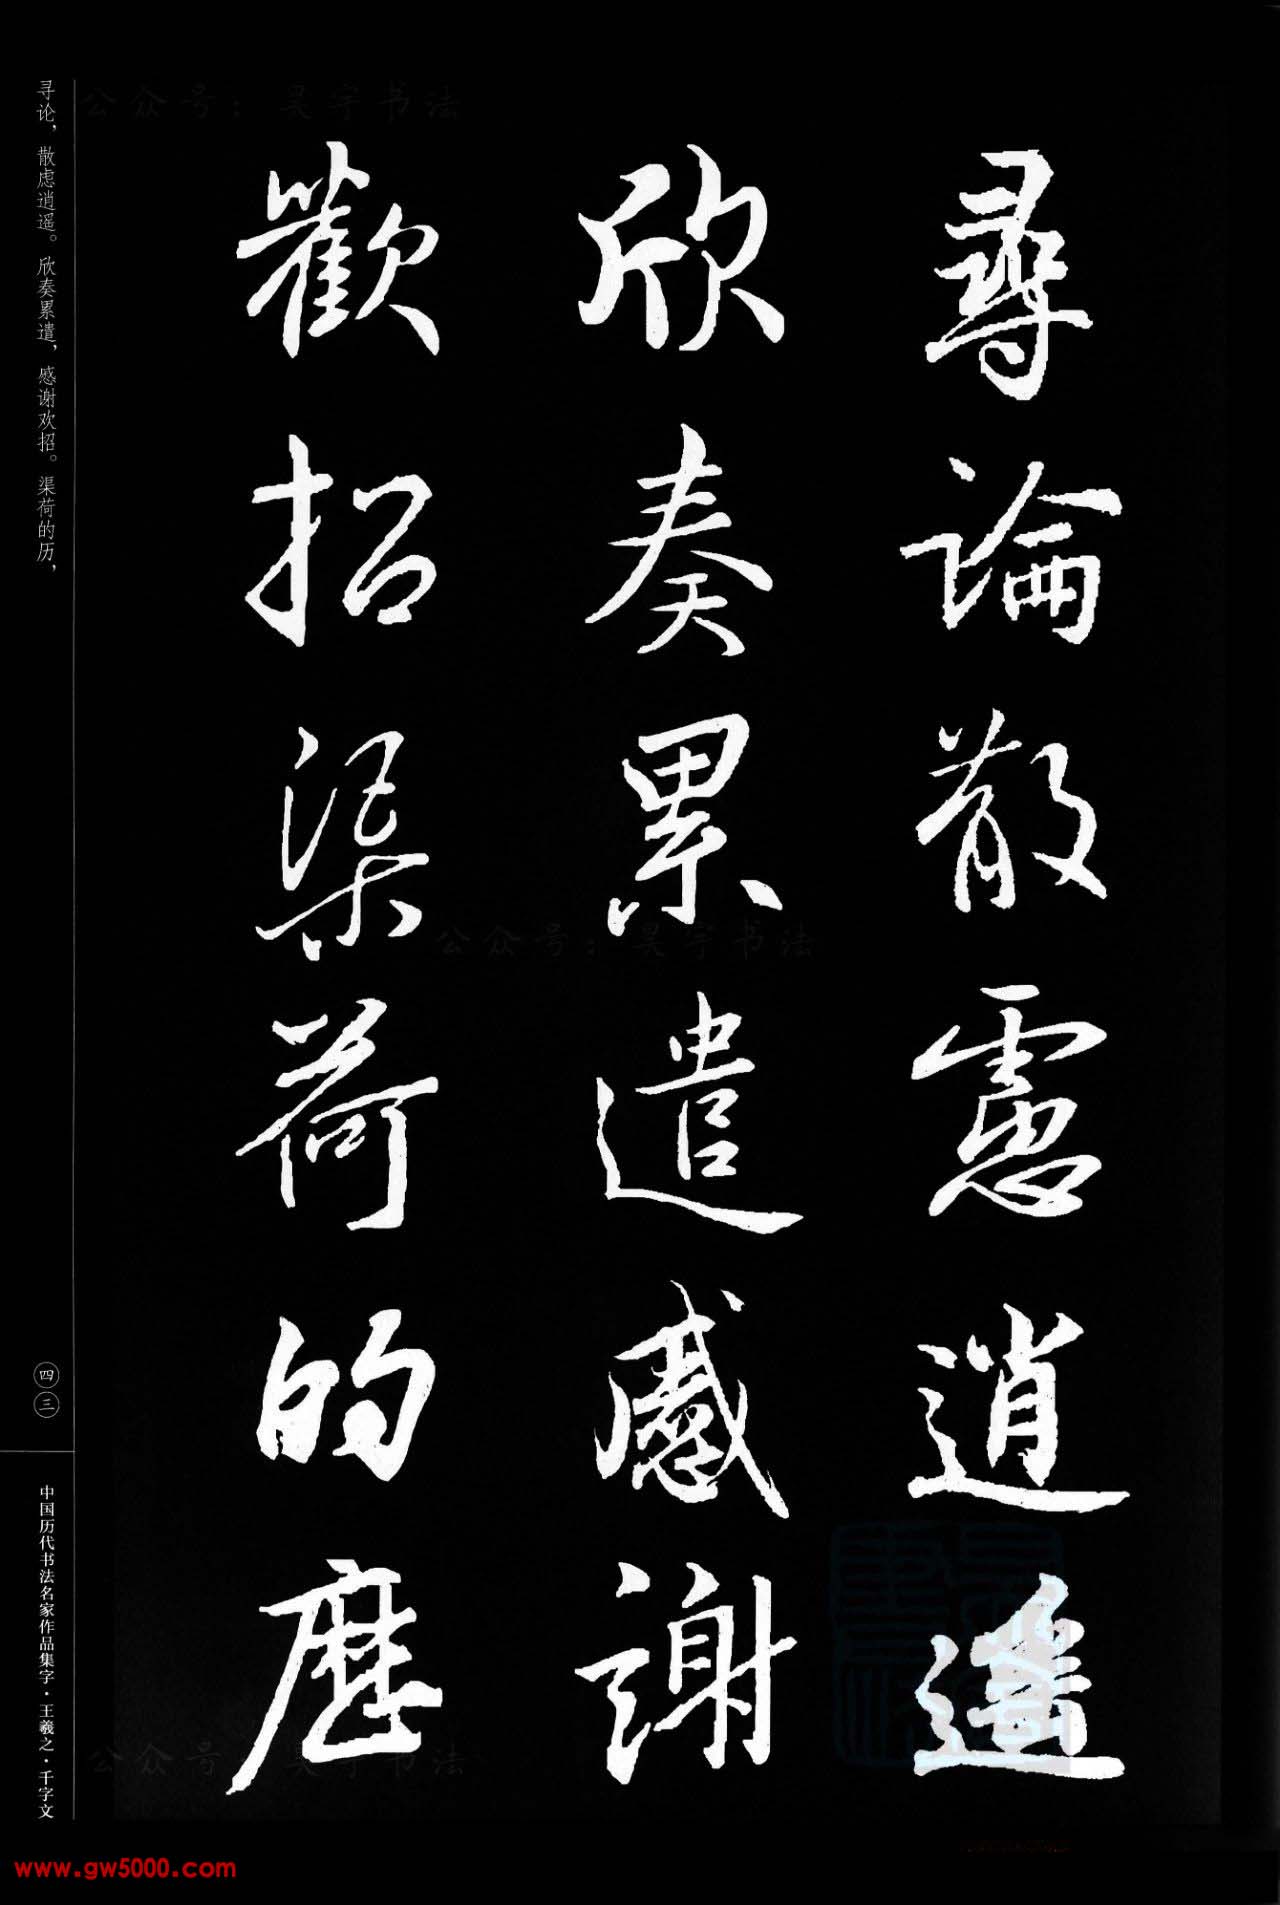 尋論散慮逍遥
欣奏累遣感謝
歡招渠荷的歷
寻论，散虑逍遥。欣奏累遣，感谢欢招。渠荷的历，
四三
中国历代书法名家作品集字·王羲之·千字文
公众号：昊宇书法
公众号：昊宇书法
公众号：昊宇书法
www.gw5000.com